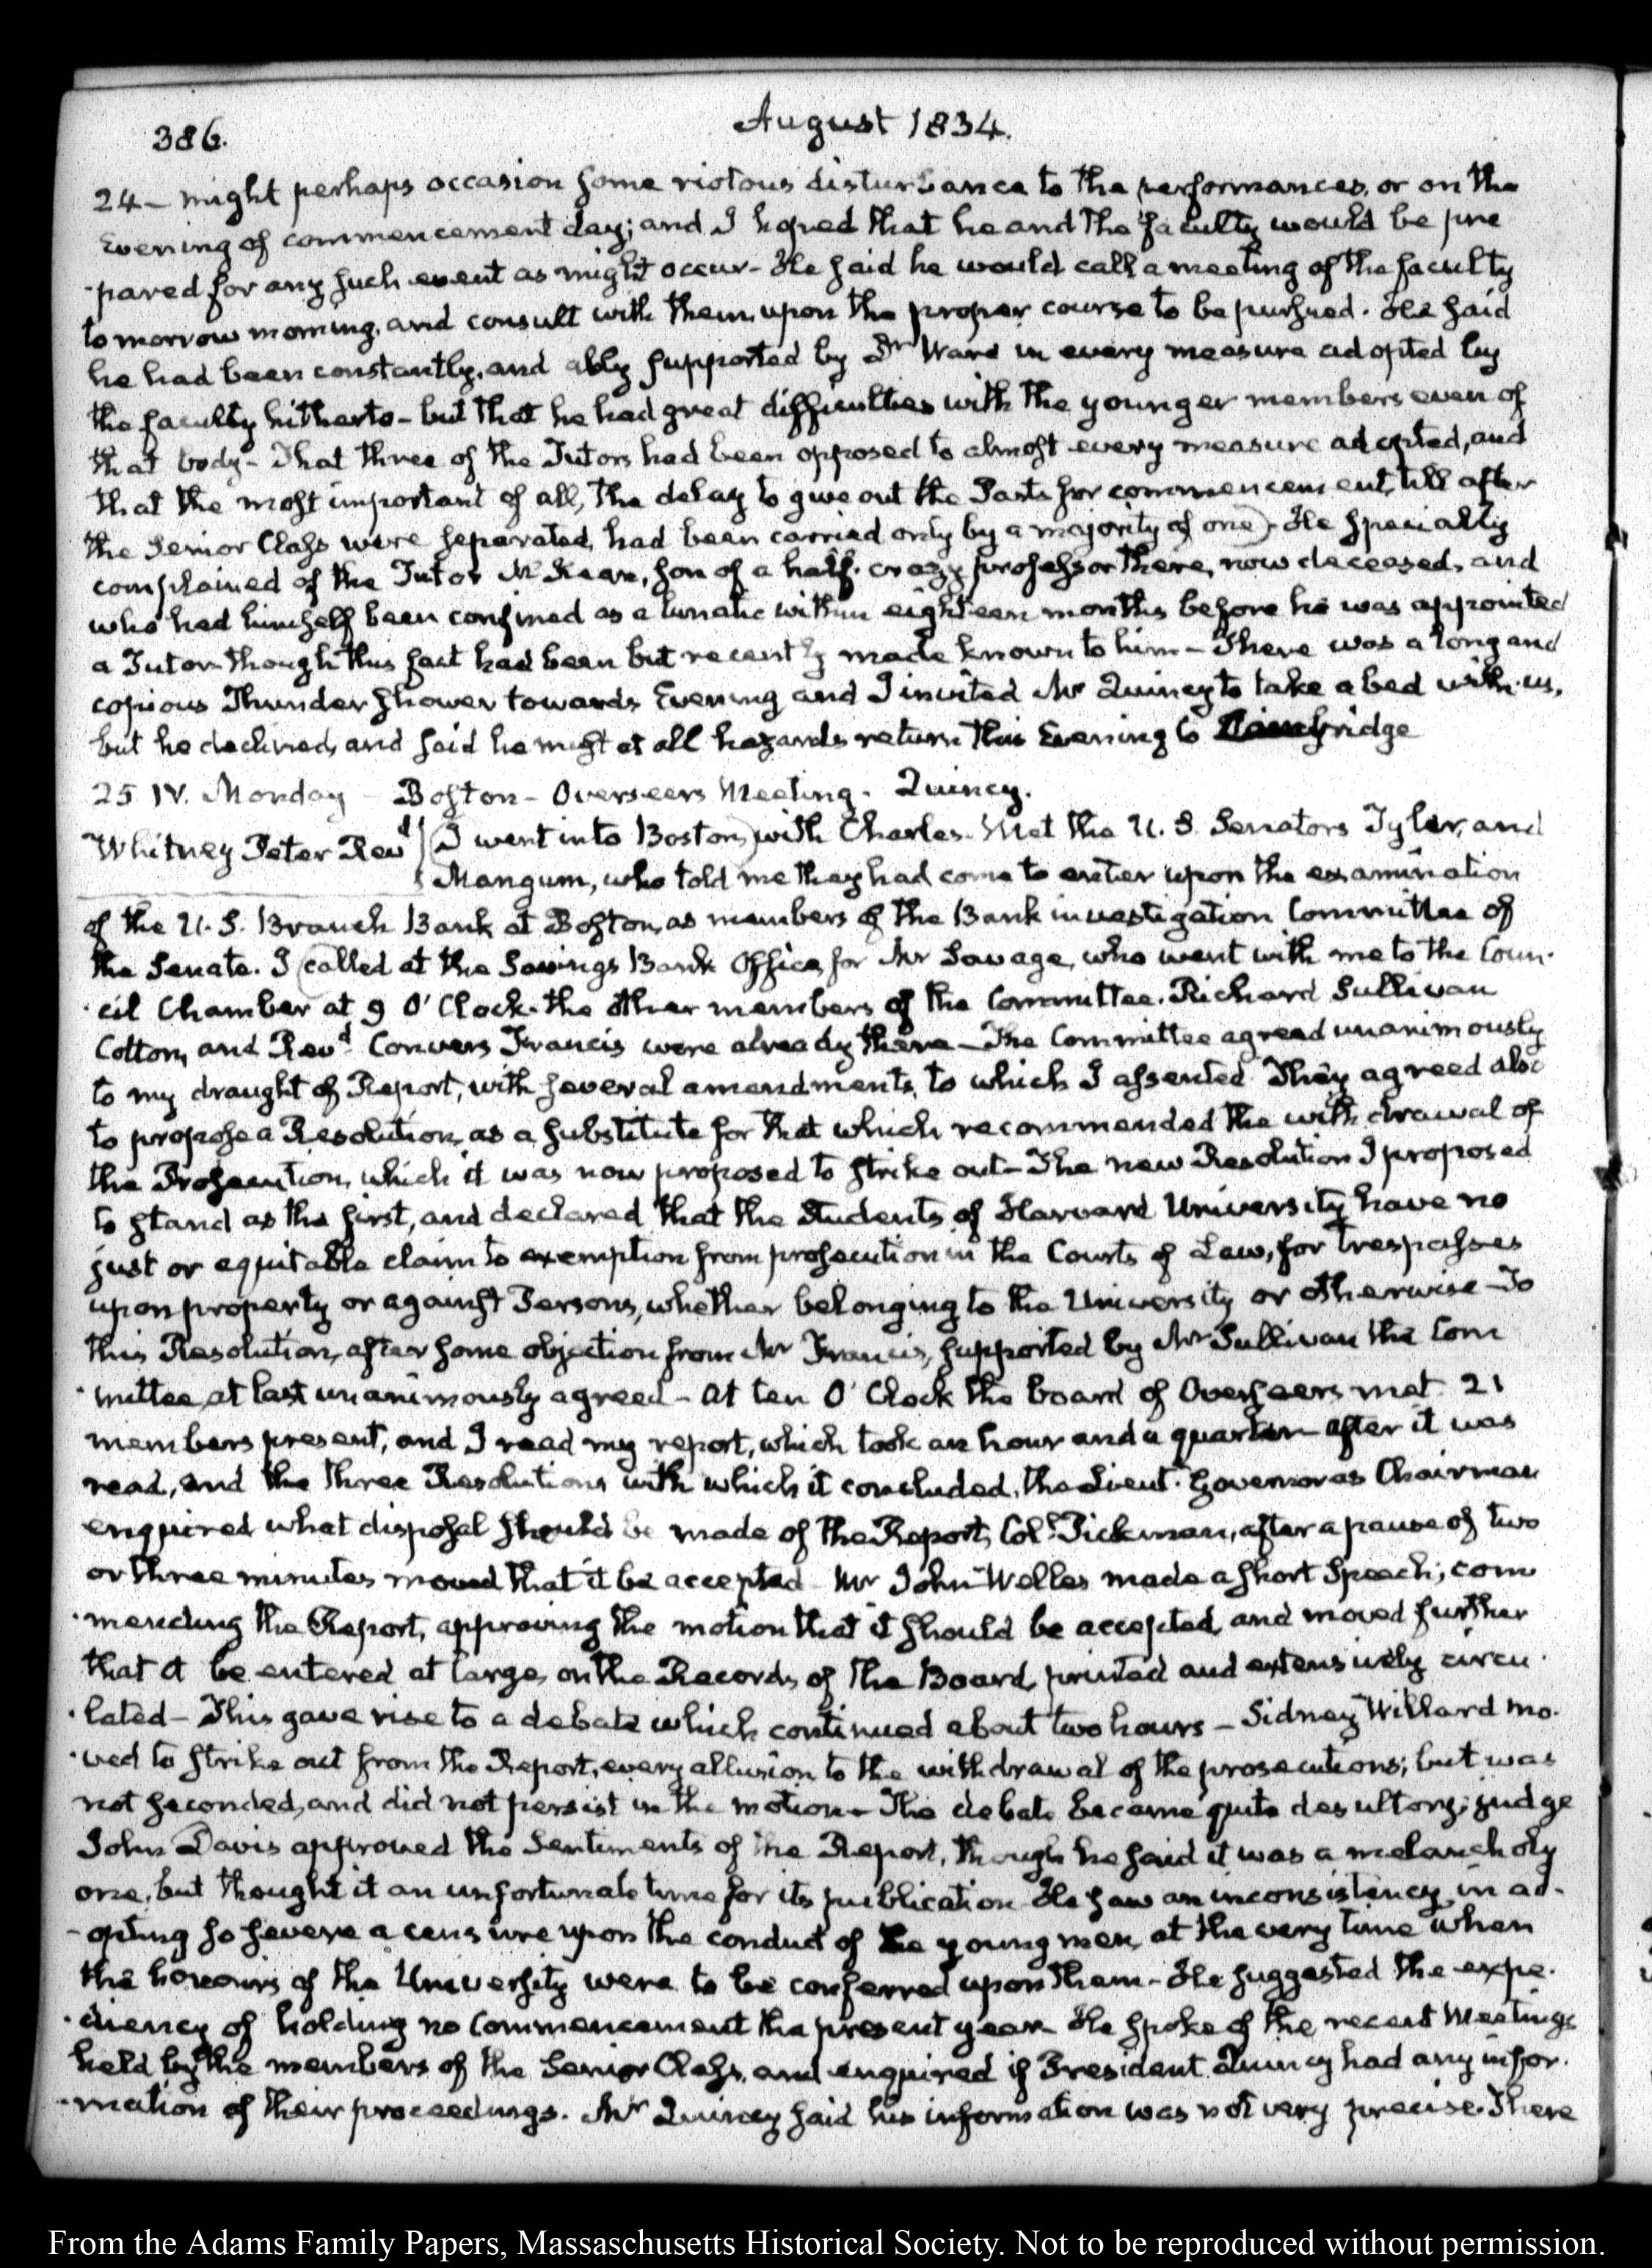 386.
August 1834.
24— might perhaps occasion some riotous disturbance to the performances, or on the
Evening of commencement day; and I hoped that he and the faculty would be pre
-pared for any such event as might occur— He said he would call a meeting of the faculty
to morrow morning, and consult with them upon the proper course to be pursued. He said
he had been constantly, and ably supported by Dr Ware in every measure adopted by
the faculty hitherto— but that he had great difficulties with the younger members even of
that body— That three of the Tutors had been opposed to almost every measure adopted, and
that the most important of all, the delay to give out the Parts for commencement, till after
the Senior Class were separated, had been carried only by a majority of one— He specially
complained of the Tutor McKean, son of a half-crazy professor there, now deceased, and
who had himself been confined as a lunatic within eighteen months before he was appointed
a Tutor though this fact had been but recently made known to him— There was a long and
copious Thunder shower towards Evening and I invited Mr Quincy to take a bed with us,
but he declined, and said he must at all hazards return this Evening to Cambridge
25 IV. Monday — Boston— Overseers Meeting. Quincy.
Whitney Peter Revd
I went into Boston with Charles. Met the U. S. Senators Tyler, and
Mangum, who told me they had come to enter upon the examination
of the U. S. Branch Bank at Boston, as members of the Bank investigation Committee of
the Senate. I called at the Savings Bank Office for Mr Savage, who went with me to the Coun-
-cil Chamber at 9 O'Clock. the other members of the Committee. Richard Sullivan
Cotton, and Revd Convers Francis were already there— The Committee agreed unanimously
to my draught of Report, with several amendments, to which I assented. They agreed also
to propose a Resolution, as a substitute for that which recommended the withdrawal of
the Prosecution, which it was now proposed to strike out— The new Resolution I proposed
to stand as the first, and declared that the Students of Harvard University have no
just or equitable claim to exemption from prosecution in the Courts of Law, for trespasses
upon property or against Persons, whether belonging to the University or otherwise— To
this Resolution, after some objection from Mr Francis, supported by Mr Sullivan the Com
-mittee at last unanimously agreed— At ten O'Clock the board of Overseers met. 21
members present, and I read my report, which took an hour and a quarter— after it was
read, and the three Resolutions with which it concluded, the Lieut. Governor as Chairman
enquired what disposal should be made of the Report, Coll. Pickman, after a pause of two
or three minutes moved that it be accepted. Mr John Welles made a short Speech; com
-mending the Report, approving the motion that it should be accepted, and moved further
that it be entered at large on the Records of the Board, printed and extensively circu-
-lated— This gave rise to a debate which continued about two hours— Sidney Willard mo-
-ved to strike out from the Report, every allusion to the withdrawal of the prosecutions; but was
not seconded, and did not persist in the motion— The debate became quite desultory; judge
John Davis approved the Sentiments of the Report, though he said it was a melancholy
one, but thought it an unfortunate time for its publication. He saw an inconsistency in ad-
-opting so severe a censure upon the conduct of the young men, at the very time when
the honours of the University were to be conferred upon them— He suggested the expe-
-diency of holding no Commencement the present year— He spoke of the recent Meetings
held by the members of the Senior Class, and enquired if President Quincy had any infor-
-mation of their proceedings. Mr Quincy said his information was not very precise. There
From the Adams Family Papers, Massachusetts Historical Society. Not to be reproduced without permission.